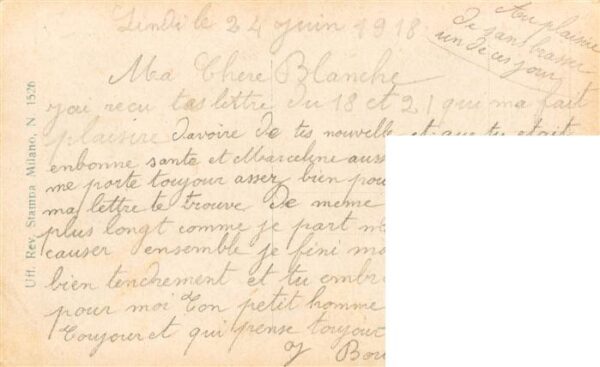 Lindi le 24 juin 1918
Au plaisire
de sanbrasser
un de ces jour
Ma Chere Blanche
yai recu tas lettre du 18 et 21 qui ma fait
plaisire davoire de tes nouvelle et que tu etait
enbonne sante et Marceline auss
me porte toujour assez bien pou
ma lettre te trouve de meme
plus longt comme je part
causer ensemble je fini
bien tenchrement et tu embr
pour moi Ton petit homme
Toujour et qui pense toujour
Uff. Rev. Stampa Milano, N. 1526